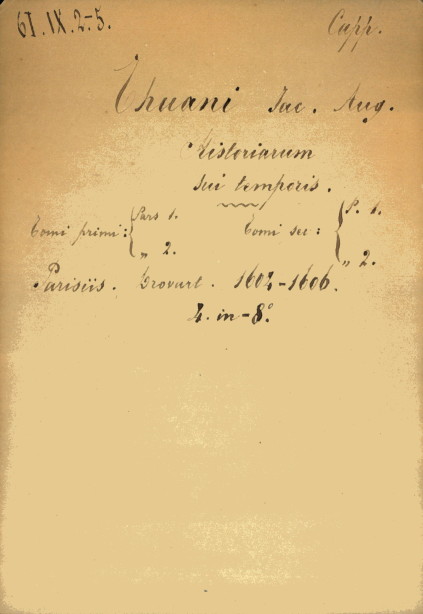 61.IX.2-5. Capp.
Thuani Jac. Aug.
Historiarum
sui temporis.
Tomi primi: { Pars 1. Tomi sec: { P. 1.
„ 2. „ 2.
Parisiis. Drovart. 1604-1606.
4. in-8°.